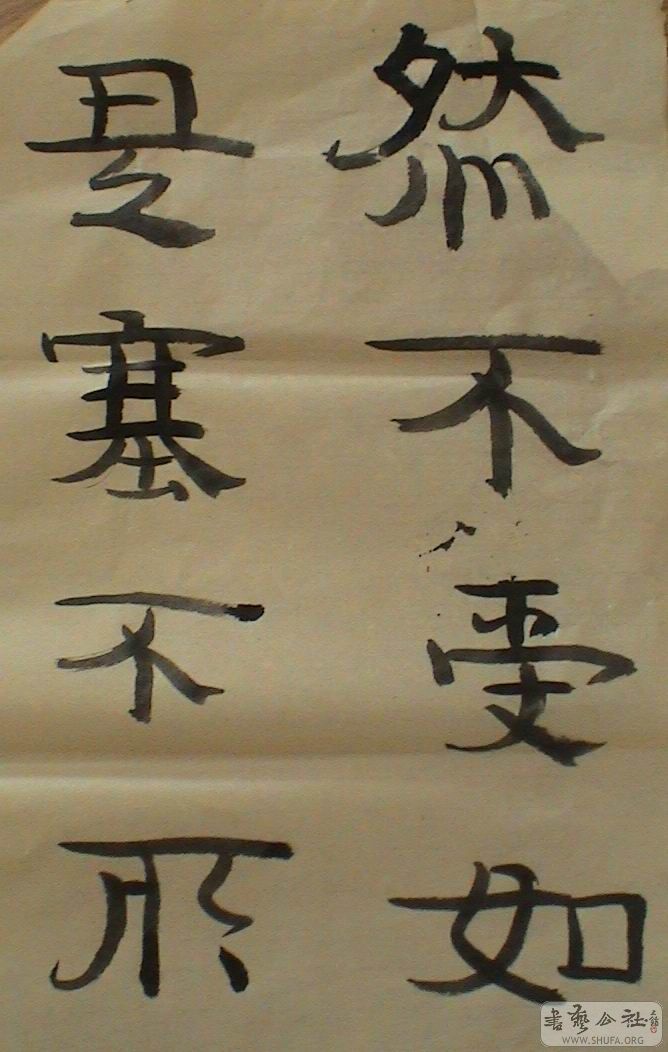 然不受如
塞不
書藝公社
WWW.SHUFA.ORG